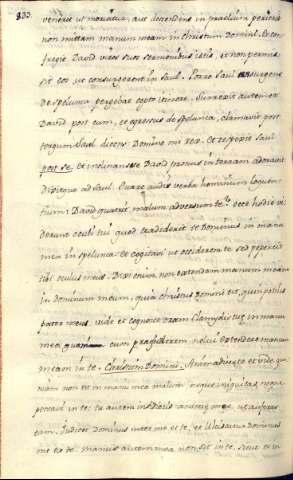 833.
venerit ut moriatur, aut descendens in praelium perierit
non mittam manum meam in christum Domini. Et con
fregit David viros suos sermonibus istis, et non permi
sit eos, ut consurgerent in Saul. Porro Saul exsurgens
de spelunca pergebat coepto itinere. Surrexit autem et
David post eum, et egressus de spelunca, clamavit post
tergum Saul dicens. Domine mi rex. Et respexit Saul
post se, et inclinans se David pronus in terram adoravit
dixitque ad Saul. Quare audis verba hominum loquen
tium: David quaerit malum adversum te? ecce hodie vi
derunt oculi tui quod tradiderit te Dominus in manu
mea in spelunca, et cogitavi ut occiderem te sed pepercit
tibi oculus meus. Dixi enim non extendam manum meam
in dominum meum, quia christus domini est, quin potius
pater mi, vide et cognosce oram Clamydis tuae in manu
mea, cum praescinderem nolui extendere manum
meam in te. Christum Domini. Animadverte et vide, quo
niam non est in manu mea malum neque iniquitas neque
peccavi in te: tu autem insidiaris animae meae ut auferas
eam. Judicet dominus inter me et te, et ulciscatur dominus
me ex te. manus autem mea non sit in te. Sicut et in